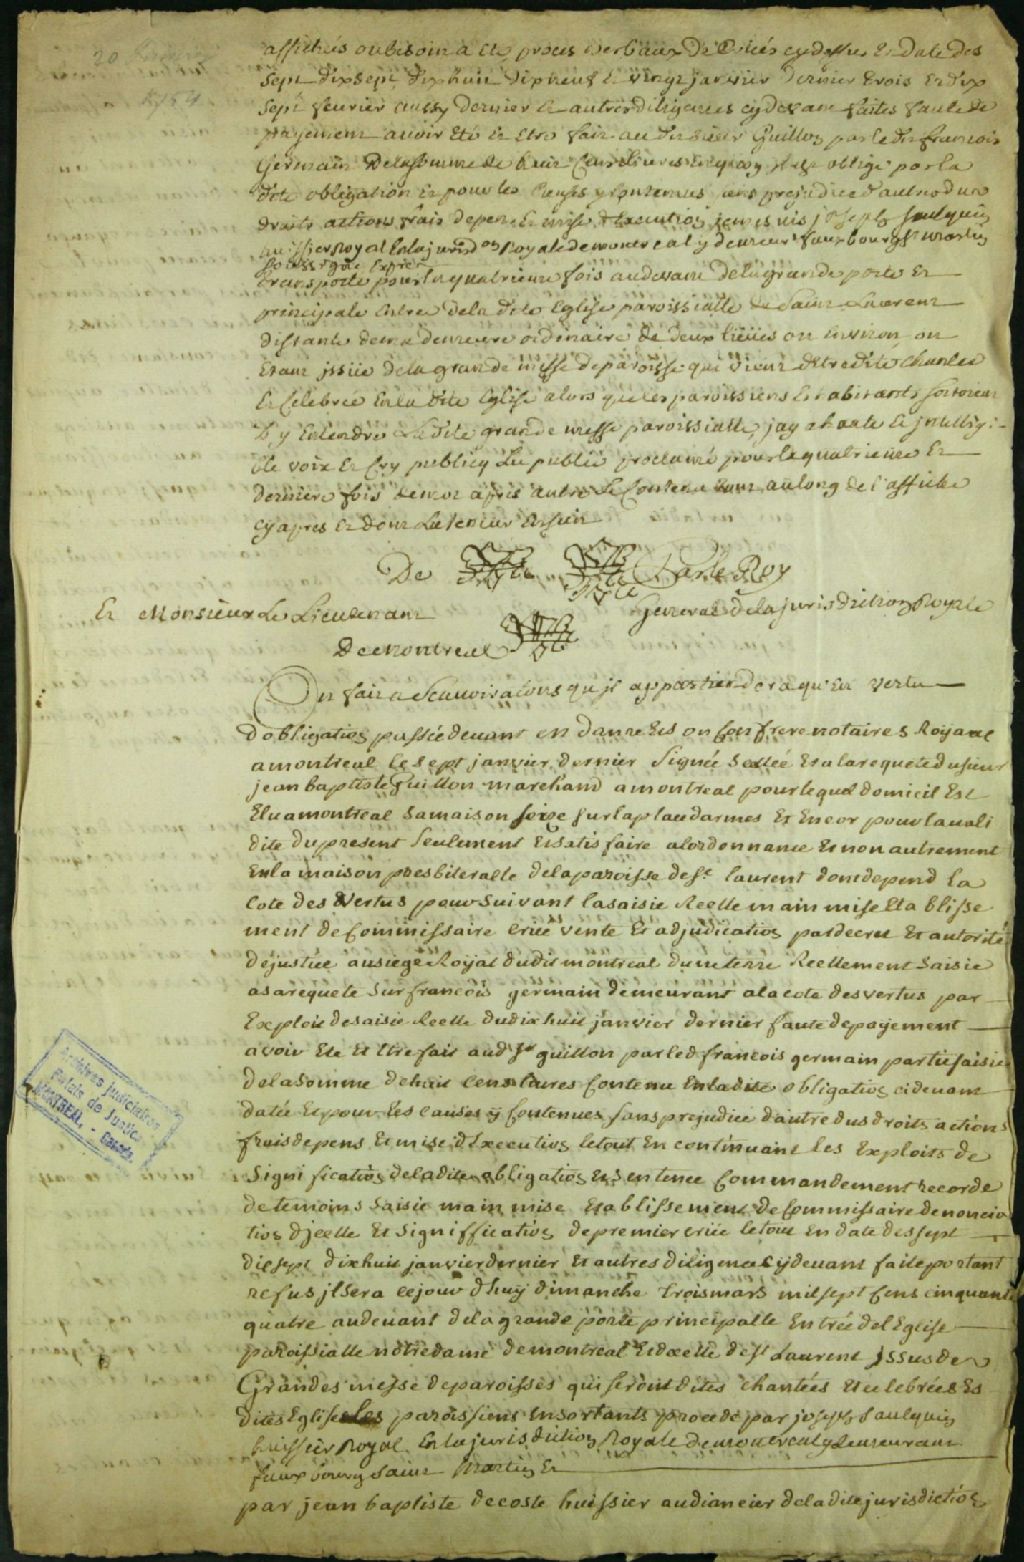 affiches au besoin a et proces verbaux de criées cy dessus Et Datte des
Sept dixsept dixhuit dixneuf & vingt janvier dernier trois Et dix
Sept fevrier aussy dernier Et autres diligences cy devant faites faute de
payement avoir Eté Et Etre fait au dit Sieur Guillon par le dit francois
Germain De la somme de huit Cent livres En quoy il est obligé par la
dite obligation Et pour les Causes y Contenues sans prejudice d'autre du
droits actions frais depens Et mise d Execution je me suis joseph faulquin
huissier Royal En la jurisdon Royale de montreal y demeurt faux bourg St martin
soussigné Exprès
transporté pour la quatrieme fois au devant de la grande porte Et
principale Entrée de la dite Eglise paroissialle de Saint Laurent
distante de ma demeure ordinaire de deux lieües ou Environ ou
Etant jssüe de la grande messe de paroisse qui vient d Etre dite chantée
Et Celebrée En la dite Eglise alors que les paroissiens Et habitants Sortoient
d y Entendre La dite grande messe paroissialle, jay a haute Et jntelligi=
ble voix Et Cry publicq Lu publié proclamé pour la quatrieme Et
derniere fois de mot apres autre Le Contenu tout au long de l'affiche
cy apres Et dont La teneur Ensuit
De Par Le Roy
Et Monsieur Le Lieutenant General de la jurisdiction Royale
De Montreal
On fait a Scauoir a tous qu'jl appartiendera qu'En vertu
d obligation passée devant me danre Et son Confrere notaires Royaux
a montreal le sept janvier dernier Signée Scellée Et a la requete du sieur
jean baptiste Guillon marchand a montreal pour lequel domicil Est
Elu a montreal Sa maison Size Sur la place darmes Et Encor pour la vali
dité du present Seulement Et satisfaire a lordonnance Et non autrement
En la maison presbiteralle de la paroisse de St laurent dont depend la
Cote des Vertus pour Suivant la saisie Reelle main mise Etablisse
ment de Commissaire criée vente Et adjudication par decret Et autorité
de justice au siege Royal du dit montreal du ne terre Reellement Saisie
a sa requete Sur francois germain demeurant a la cote des vertus par
Exploit de saisie Reelle du dix huit janvier dernier faute de payement
avoir Eté Et Etre fait aud Sr guillon par led francois germain partie saisie
de la Somme de huit Cens livres Contenu En la dite obligation cidevant
datée Et pour les causes ÿ Contenues Sans prejudice d'autre dus droits actions
frais depens Et mise d'Execution le tout En continuant les Exploits de
Signification de la dite obligation Et Sentence Commandement recordé
de temoins Saisie main mise Etablissement de Commissaire denoncia
tion d jcelle Et Signiffication de premier criée le tout En date des sept
dit sept dix huit janvier dernier Et autres diligences cÿ devant faite portant
refus jl sera ce jour dhuÿ dimanche trois mars mil sept Cens cinquante
quatre au devant de la grande porte principalle Entrée de l Eglise
paroissialle nôtre dame de montreal Et de celle de St Laurent jssus des
Grandes messe de paroisses qui seront dites chantées Et celebrées Es
dites Eglises les paroissiens En sortants procede par joseph faulquin
huissier Royal En la jurisdiction Royale de montreal y demeurant
faux bourg Saint Martin Et
par jean baptiste decoste huissier audiancier de la dite jurisdiction
Archives judiciaires
Palais de Justice
MONTREAL, - Canada